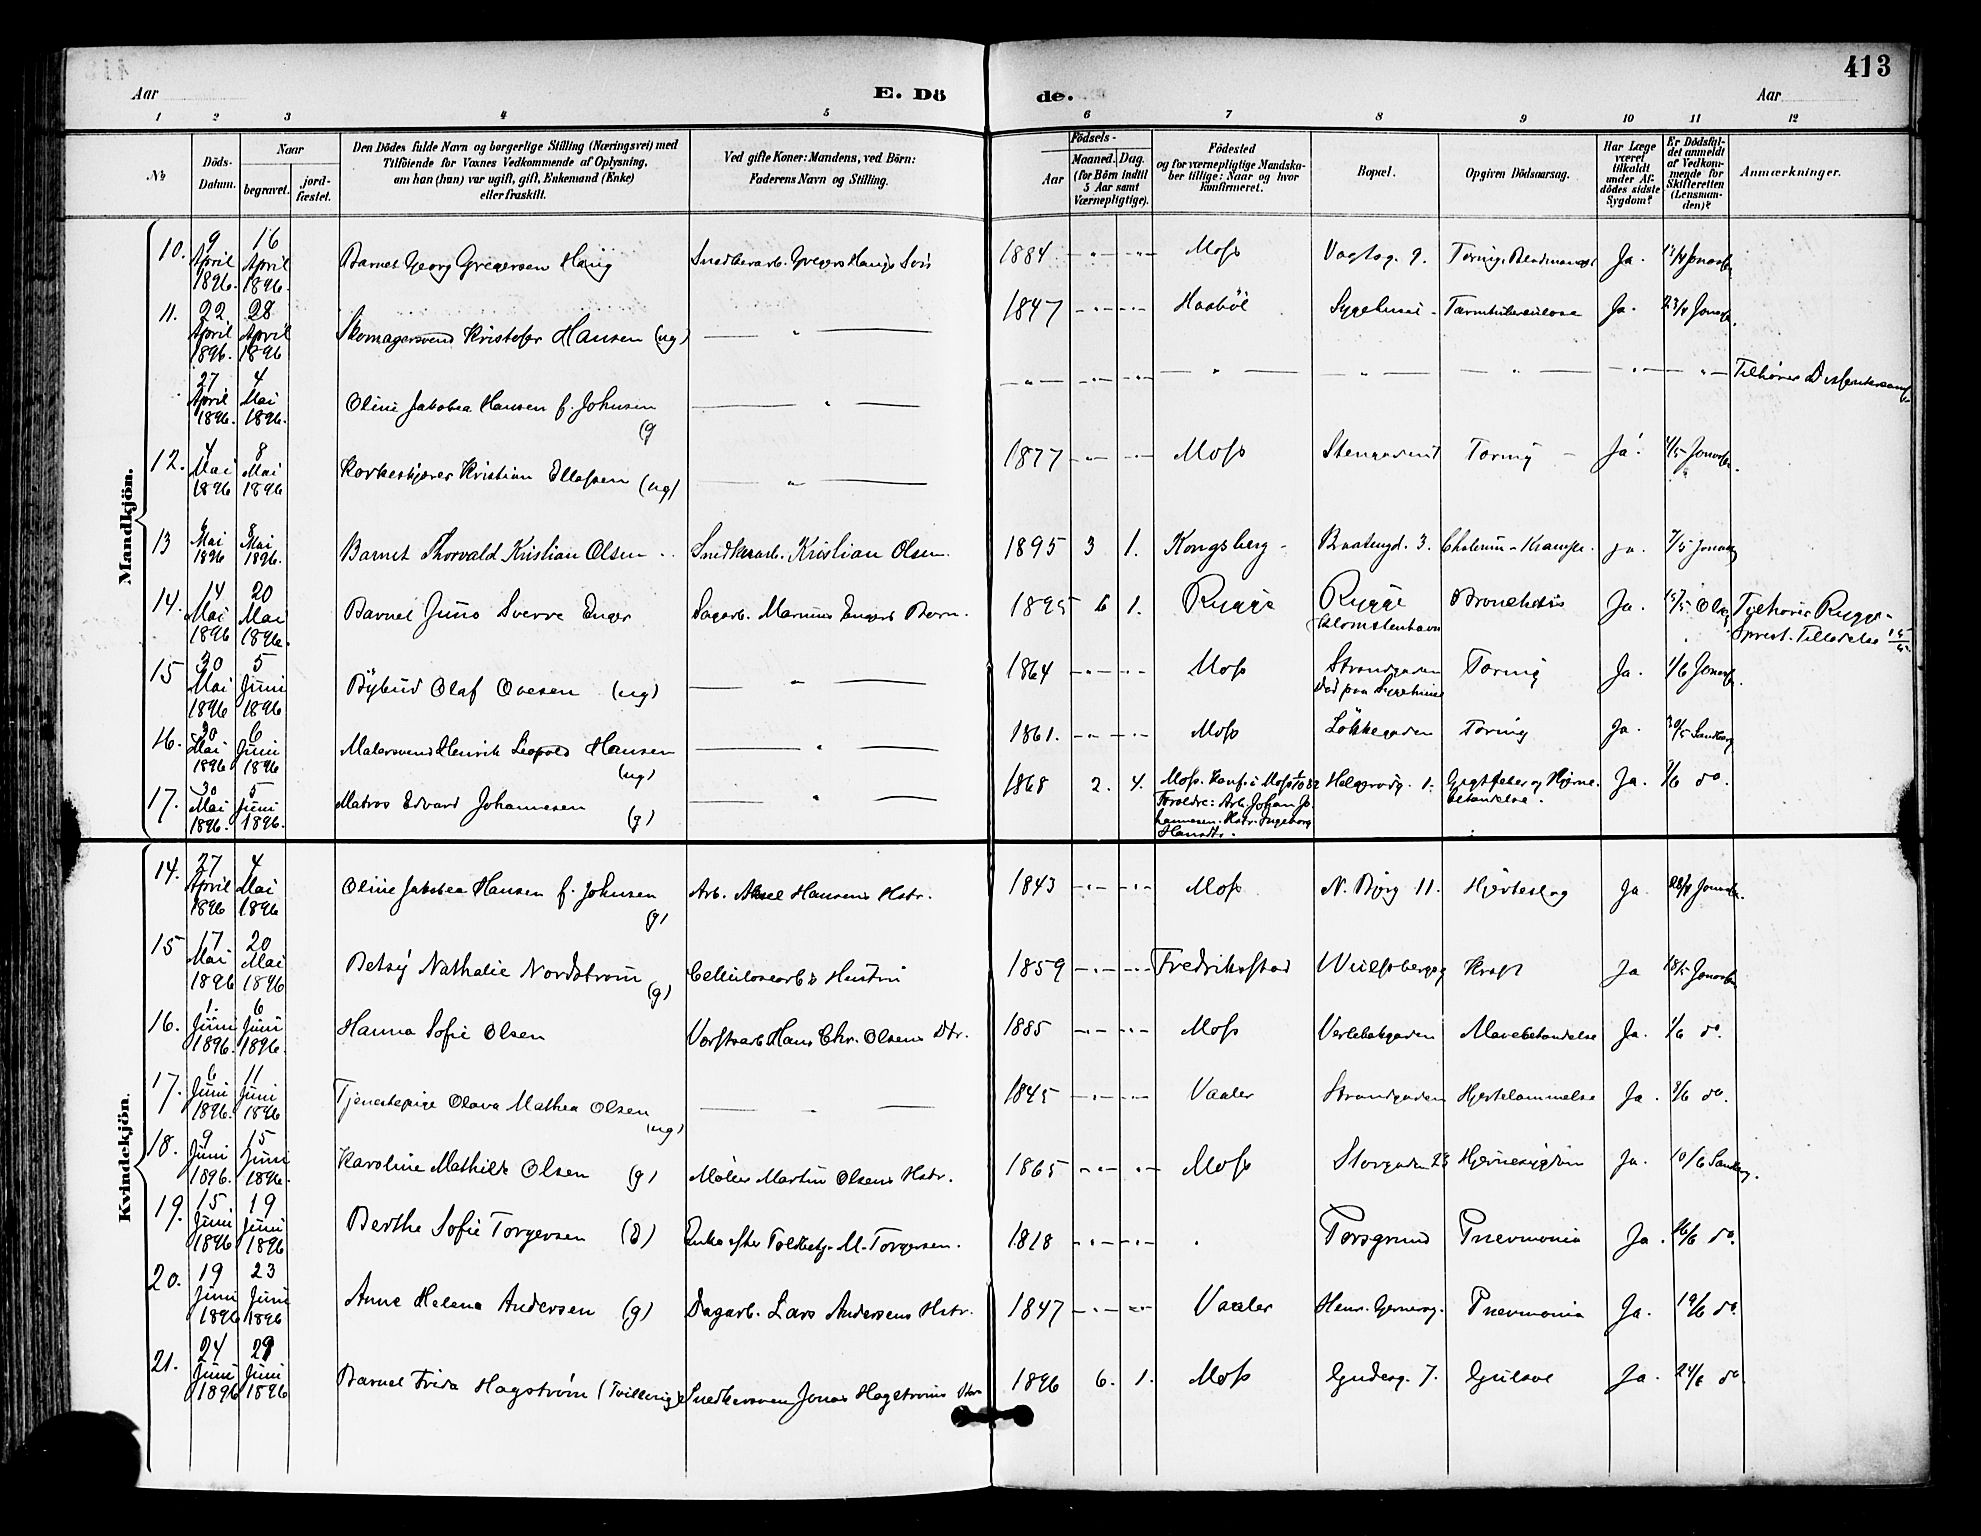 413
Aar
E. Dö
de.
Aar
1 2 3 4 5 6 7 8 9 10 11 12
No
Döds-
Datum.
Naar
begravet.
jord-
fæstet.
Den Dödes fulde Navn og borgerlige Stilling (Næringsvei) med
Tilföiende for Voxnes Vedkommende af Oplysning,
om han (hun) var ugift, gift, Enkemand (Enke)
eller fraskilt.
Ved gifte Koner: Mandens, ved Börn:
Faderens Navn og Stilling.
Födsels-
Aar
Maaned. Dag.
(for Börn indtil
5 Aar samt
Værnepligtige).
Födested
og for værnepligtige Mandska-
ber tillige: Naar og hvor
konfirmeret.
Bopæl.
Opgiven Dödsaarsag.
Har Læge
været
tilkaldt
under Af-
dödes sidste
Sygdom?
Er Dödsfal-
det anmeldt
af Vedkom-
mende for
Skifteretten
(Lensman-
den)?
Anmærkninger.
Mandkjön.
10. 9 April 1896. 16 April 1896. Barnet Georg Gregersen Haug Snedkerarb. Gregers Haugs Sön 1884 Moss Vogtsg. 9. Ja.
11. 22 April 1896. 28 April 1896 Skomagersvend Kristofer Hansen (ug) 1847 Haabøl Sygehuset Tarmtuberculose Ja. 23/4
27 April 1896. 4 Mai 1896. Oline Jakobea Hansen f. Johnsen (g Tilhører
12. 4 Mai 1896 8 Mai 1896 Korkeskjærer Kristian Ellefsen (ug) 1877 Moss Tæring Ja. 4/5
13 6 Mai 1896 8 Mai 1896. Barnet Thorvald Kristian Olsen Snedkerarb. Kristian Olsen. 1895 3 1. Kongsberg 3. Cholerin - Krampe. ja. 7/5
14. 14 Mai 1896 20 Mai 1896. Barnet Juno Sverre Enger Dagarb. Marinus Engers Barn. 1895 6 1. Rygge Rygge Bronchitis Ja. 15/5
15 30 Mai 1896 5 Juni 1896 Bybud Olaf Ovesen (ug) 1864 Moss Strandgaden Død paa Sygehuset Tæring Ja. 1/6
16. 30 Mai 1896 6 Juni 1896 Malersvend Henrik Leopold Hansen (ug) 1861. Moss Løkkegaden Tæring Ja. 30/5 Sandberg
17. 30 Mai 1896. 5 Juni 1896. Matros Edvard Johannesen (g) 1868 2. 4. Moss. Konf. i Moss
Foreldre: Arb. Johan Jo-
hannesen. Hstr. Ingeborg
Hansdtr.
Helgerødg. 1. Gigtfeber og Hjerne-
betændelse. Ja. 1/6 do.
Kvindekjön.
14. 27 April 1896 4 Mai 1896 Oline Jakobea Hansen f. Johnsen (g) Arb. Aksel Hansens Hstr. 1843 Moss 11. Hjerteslag Ja 28/4
15 17 Mai 1896 20 Mai 1896 Betsy Nathalie Nordström (g) Cellulosearb.s Hustru 1859 Fredrikstad Wulfsbergsg Kræft Ja 18/5
16. 1. Juni 1896. 6 Juni 1896. Hanna Sofie Olsen Værftsarb. Hans Chr. Olsens Dtr. 1885 Moss Verlebakgaden Mavebetændelse Ja. 1/6 do.
17. 6 Juni 1896. 11 Juni 1896 Tjenestepige Olava Mathea Olsen (ug) 1845 Vaaler Strandgaden Hjertelammelse Ja. 8/6 do.
18. 9 Juni 1896. 15 Juni 1896. Karoline Mathilde Olsen (g) Møller Martin Olsens Hstr. 1865 Moss Storgaden 23 Hjernesygdom Ja. 10/6
19. 15 Juni 1896 19 Juni 1896 Berthe Sofie Torgersen Enke efter Toldbetj. M. Torgersen. 1818 Porsgrund Pnevmonia Ja. 16/6 do.
20. 19 Juni 1896 23 Juni 1896 Anne Helene Andersen (g) Dagarb. Lars Andersens Hstr. 1847 Vaaler Henr. Gernersg. Pnevmonia Ja. 19/6 do.
21. 24 Juni 1896 29 Juni 1896 Barnet Frida Hagström (Tvilling) Snedkersvend Jonas Hagströms 1896 6. 1. Moss Gudesg. 7. Gulsot Ja. 24/6 do.